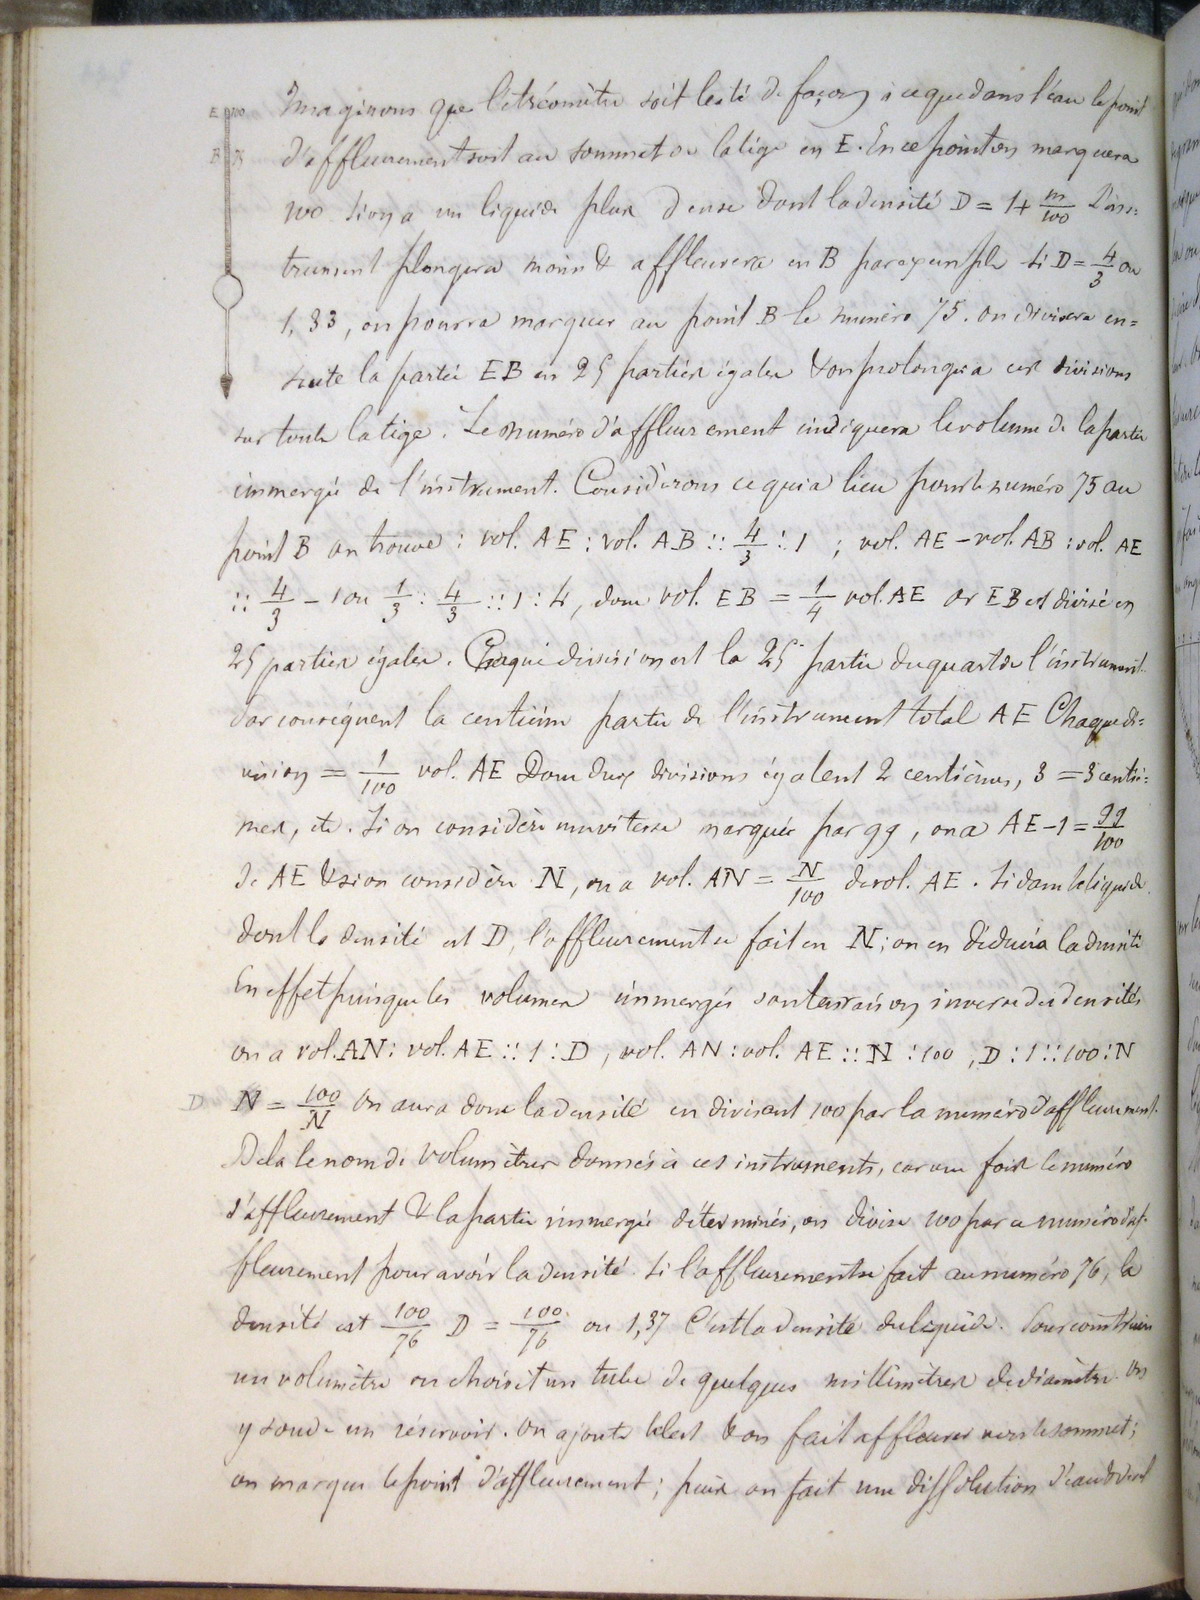 E 100
B 75
Imaginons que l'aréomètre soit lesté de façon à ce que dans l'eau le point
d'affleurement soit au sommet de la tige en E. En ce point on marquera
100 Si on a un liquide plus dense dont la densité D = 1 + m/100 L'ins-
trument plongera moins & affleurera en B par exemple si D = 4/3 ou
1,33, on pourra marquer au point B le numéro 75. on divisera en-
suite la partie EB en 25 parties égales & on prolongera ces divisions
sur toute la tige. Le numéro d'affleurement indiquera le volume de la partie
immergée de l'instrument. Considérons ce qui a lieu pour le numéro 75 au
point B on trouve : vol. AE : vol. AB :: 4/3 : 1 ; vol. AE – vol. AB : vol. AE
:: 4/3 – 1 ou 1/3 : 4/3 :: 1 : 4, donc vol. EB = 1/4 vol. AE or EB est divisé en
25 parties égales. Chaque division est la 25e partie du quart de l'instrument
par conséquent la centième partie de l'instrument total AE Chaque di-
vision = 1/100 vol. AE Donc deux divisions égalent 2 centièmes, 3 = 3 centiè-
mes, etc. Si on considère une vitesse marquée par 99, on a AE – 1 = 99/100
de AE & si on considère N, on a vol. AN = N/100 de vol. AE. Si dans le liquide
dont la densité est D, l'affleurement se fait en N ; on en déduira la densité
En effet puisque les volumes immergés sont en raison inverse des densités
on a vol. AN : vol. AE :: 1 : D, vol. AN : vol. AE :: N : 100, D : 1 :: 100 : N
D N = 100/N On aura donc la densité en divisant 100 par le numéro d'affleurement.
De là le nom de volumètres donnés à ces instruments, car une fois le numéro
d'affleurement & la partie immergée déterminés, on divise 100 par ce numéro d'af-
fleurement pour avoir la densité. Si l'affleurement se fait au numéro 76, la
densité est 100/76 D = 100/76 ou 1,37 C'est la densité du liquide. Pour construire
un volumètre on choisit un tube de quelques millimètres de diamètre. on
y soude un réservoir. On ajoute le lest & on fait affleurer vers le sommet ;
on marque le point d'affleurement ; puis on fait une dissolution d'eau